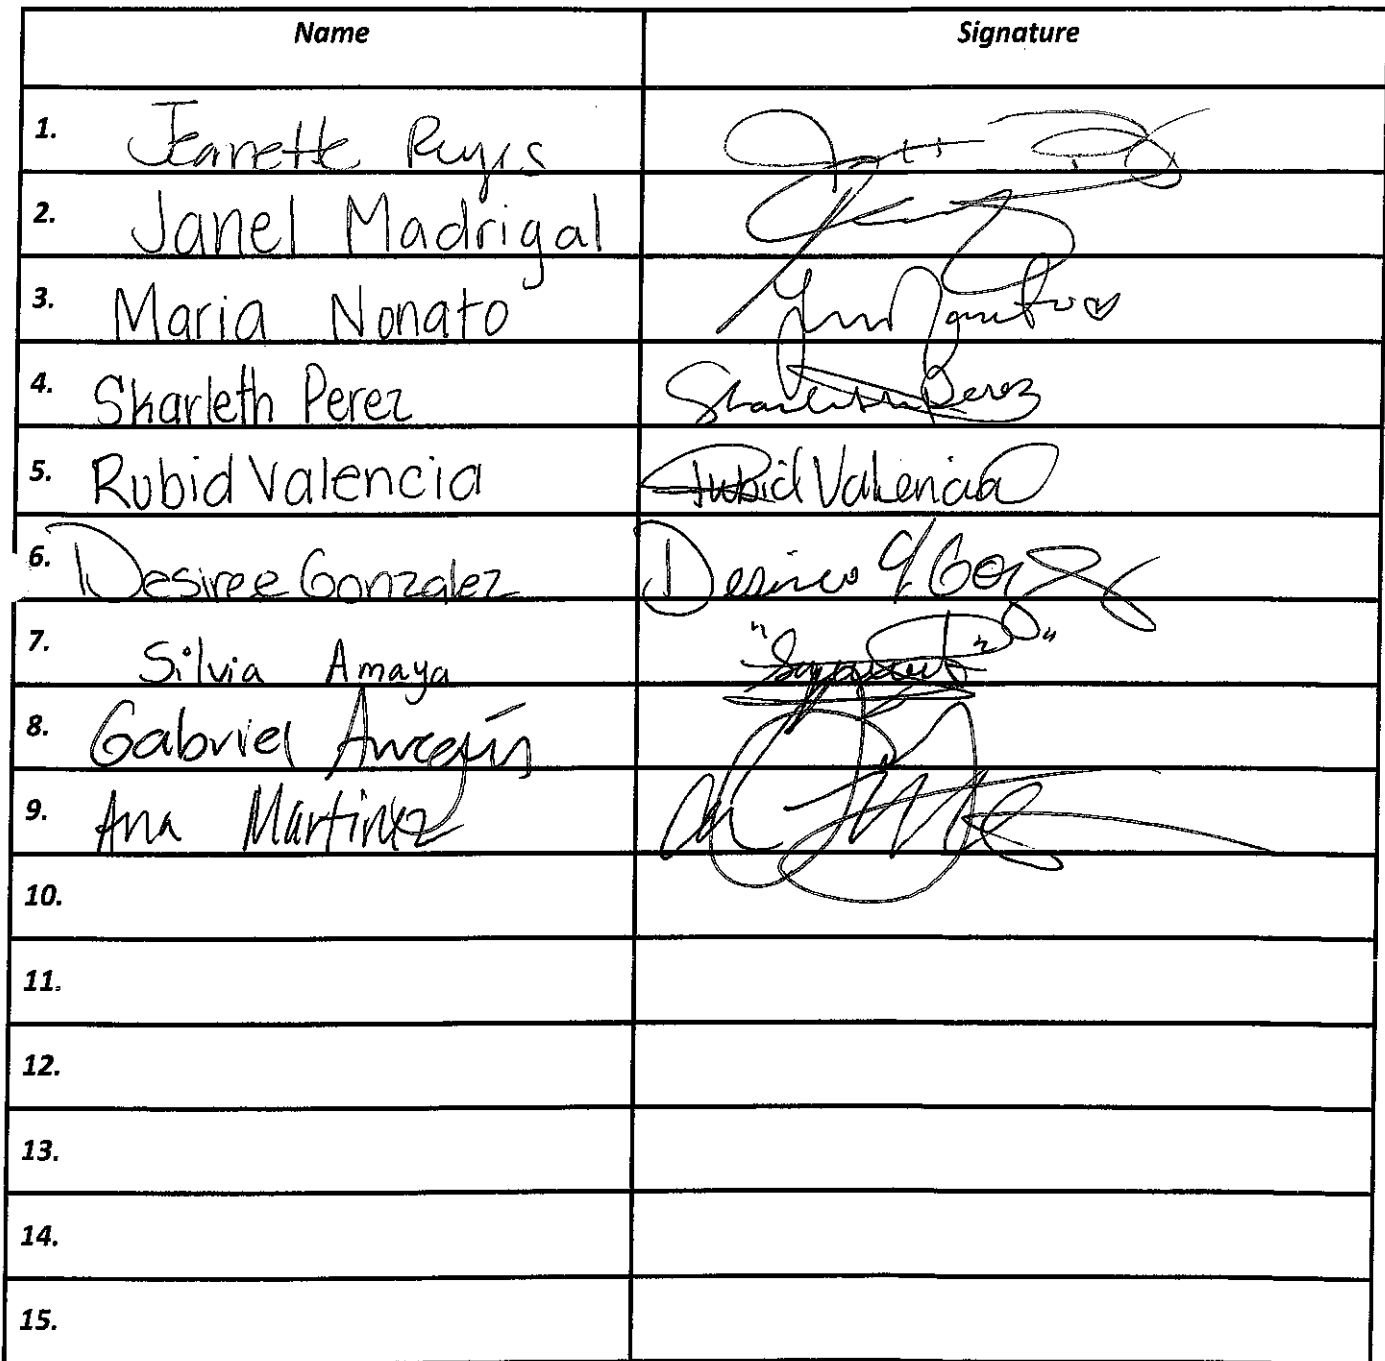 Name Signature
1. Jeanette
2. Janel Madrigal
3. Maria Nonato
4. Skarleth Perez Skarleth Perez
5. Rubid Valencia Rubid Valencia
6. Desiree Gonzalez Desiree
7. Silvia Amaya
8. Gabriel
9. Ana Martinez
10.
11.
12.
13.
14.
15.